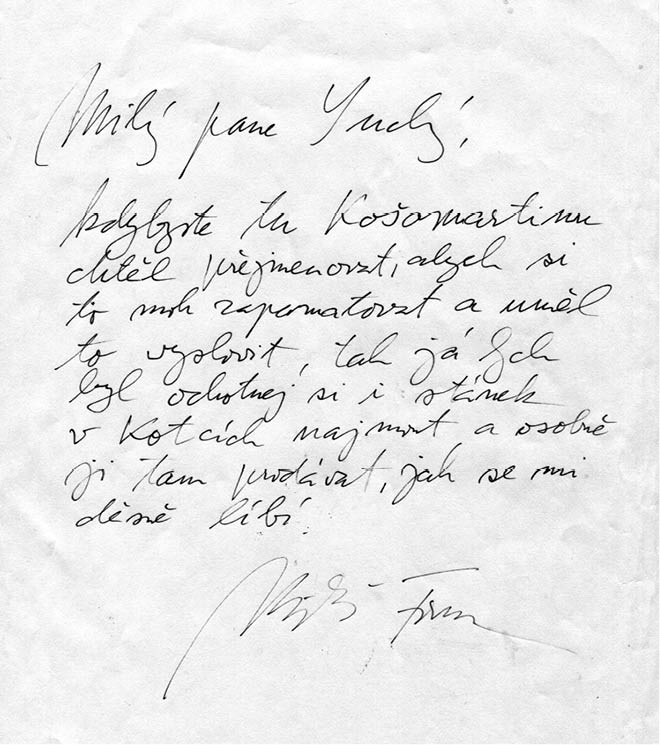 Milý pane Suchý,
kdybyste tu Košomartinu
chtěl přejmenovat, abych si
to moh zapamatovat a uměl
to vyslovit, tak já bych
byl ochotnej si i stánek
v Kotcích najmout a osobně
ji tam prodávat, jak se mi
děsně líbí.